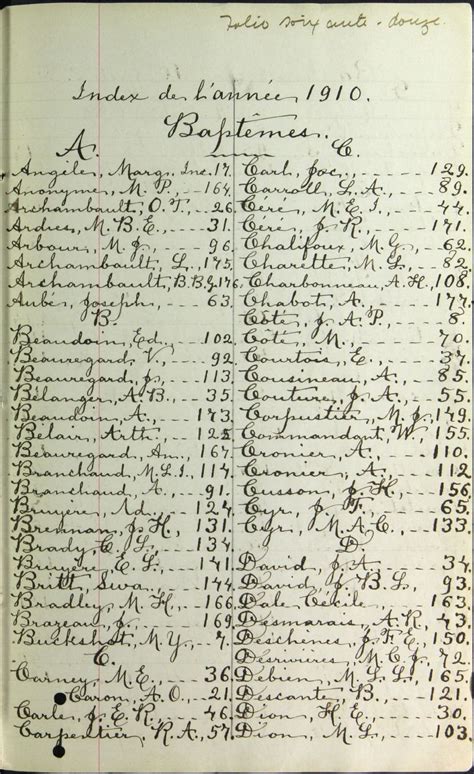 Folio soixante-douze.
Index de l'année 1910.
Baptêmes.
A.
Angèle, Marg. Inc. 17.
Anonyme, M. P., 164.
Archambault, O. T., 26.
M. B. E., 31.
Arbour, M. J., 96.
Archambault, L., 175.
Archambault, B. B. G., 176.
Aubé, Joseph, 63.
B.
Beaudoin, Ed., 102.
Beauregard, V., 92.
Beauregard, J., 113.
Bélanger, A. B., 35.
Beaudoin, A., 173.
Bélair, Arth. 125
Beauregard, An., 167.
Branchaud, M. L. I., 114.
Branchaud, A., 91.
Bruyère, Ad., 124.
Brennan, J. H., 131.
Brady, C. L., 134.
Bruyère, E. L., 141.
Britt, 144.
Bradley, M. H., 166.
Brazeau, J., 169.
Buckshot, M. Y., 7.
C.
Carney, M. E., 36.
Caron, A. O., 21.
Carle, J. E. R., 46.
Carpentier, R. A., 57.
C.
Carl, Jos., 129.
Carroll, L. A., 89.
Céré, M. E. I., 44.
Céré, J. R., 171.
Chalifoux, M. G., 62.
Charette, M. L., 82.
Charbonneau, A. H., 108.
Chabot, A., 177.
Côté, J. A. P., 8.
Côté, M., 70.
Courtois, E., 37.
Cousineau, A., 85.
Couture, J. A., 55.
M. J., 149.
Commandant, W., 155.
Cronier, A., 110.
Cronier, A., 112
Cusson, J. H., 156
Cyr, J. T., 65.
Cyr, M. A. C., 133.
D.
David, J. A., 34.
David, J. B. L., 93.
Dale Cécile, 163.
Desmarais, A. R., 43.
Deschènes, J. F. E., 150.
Desrivières M. C. J., 72.
Débien, M. L. L., 165.
Descante, B., 121.
Dion, H. E., 30.
Dion, M. L., 103.